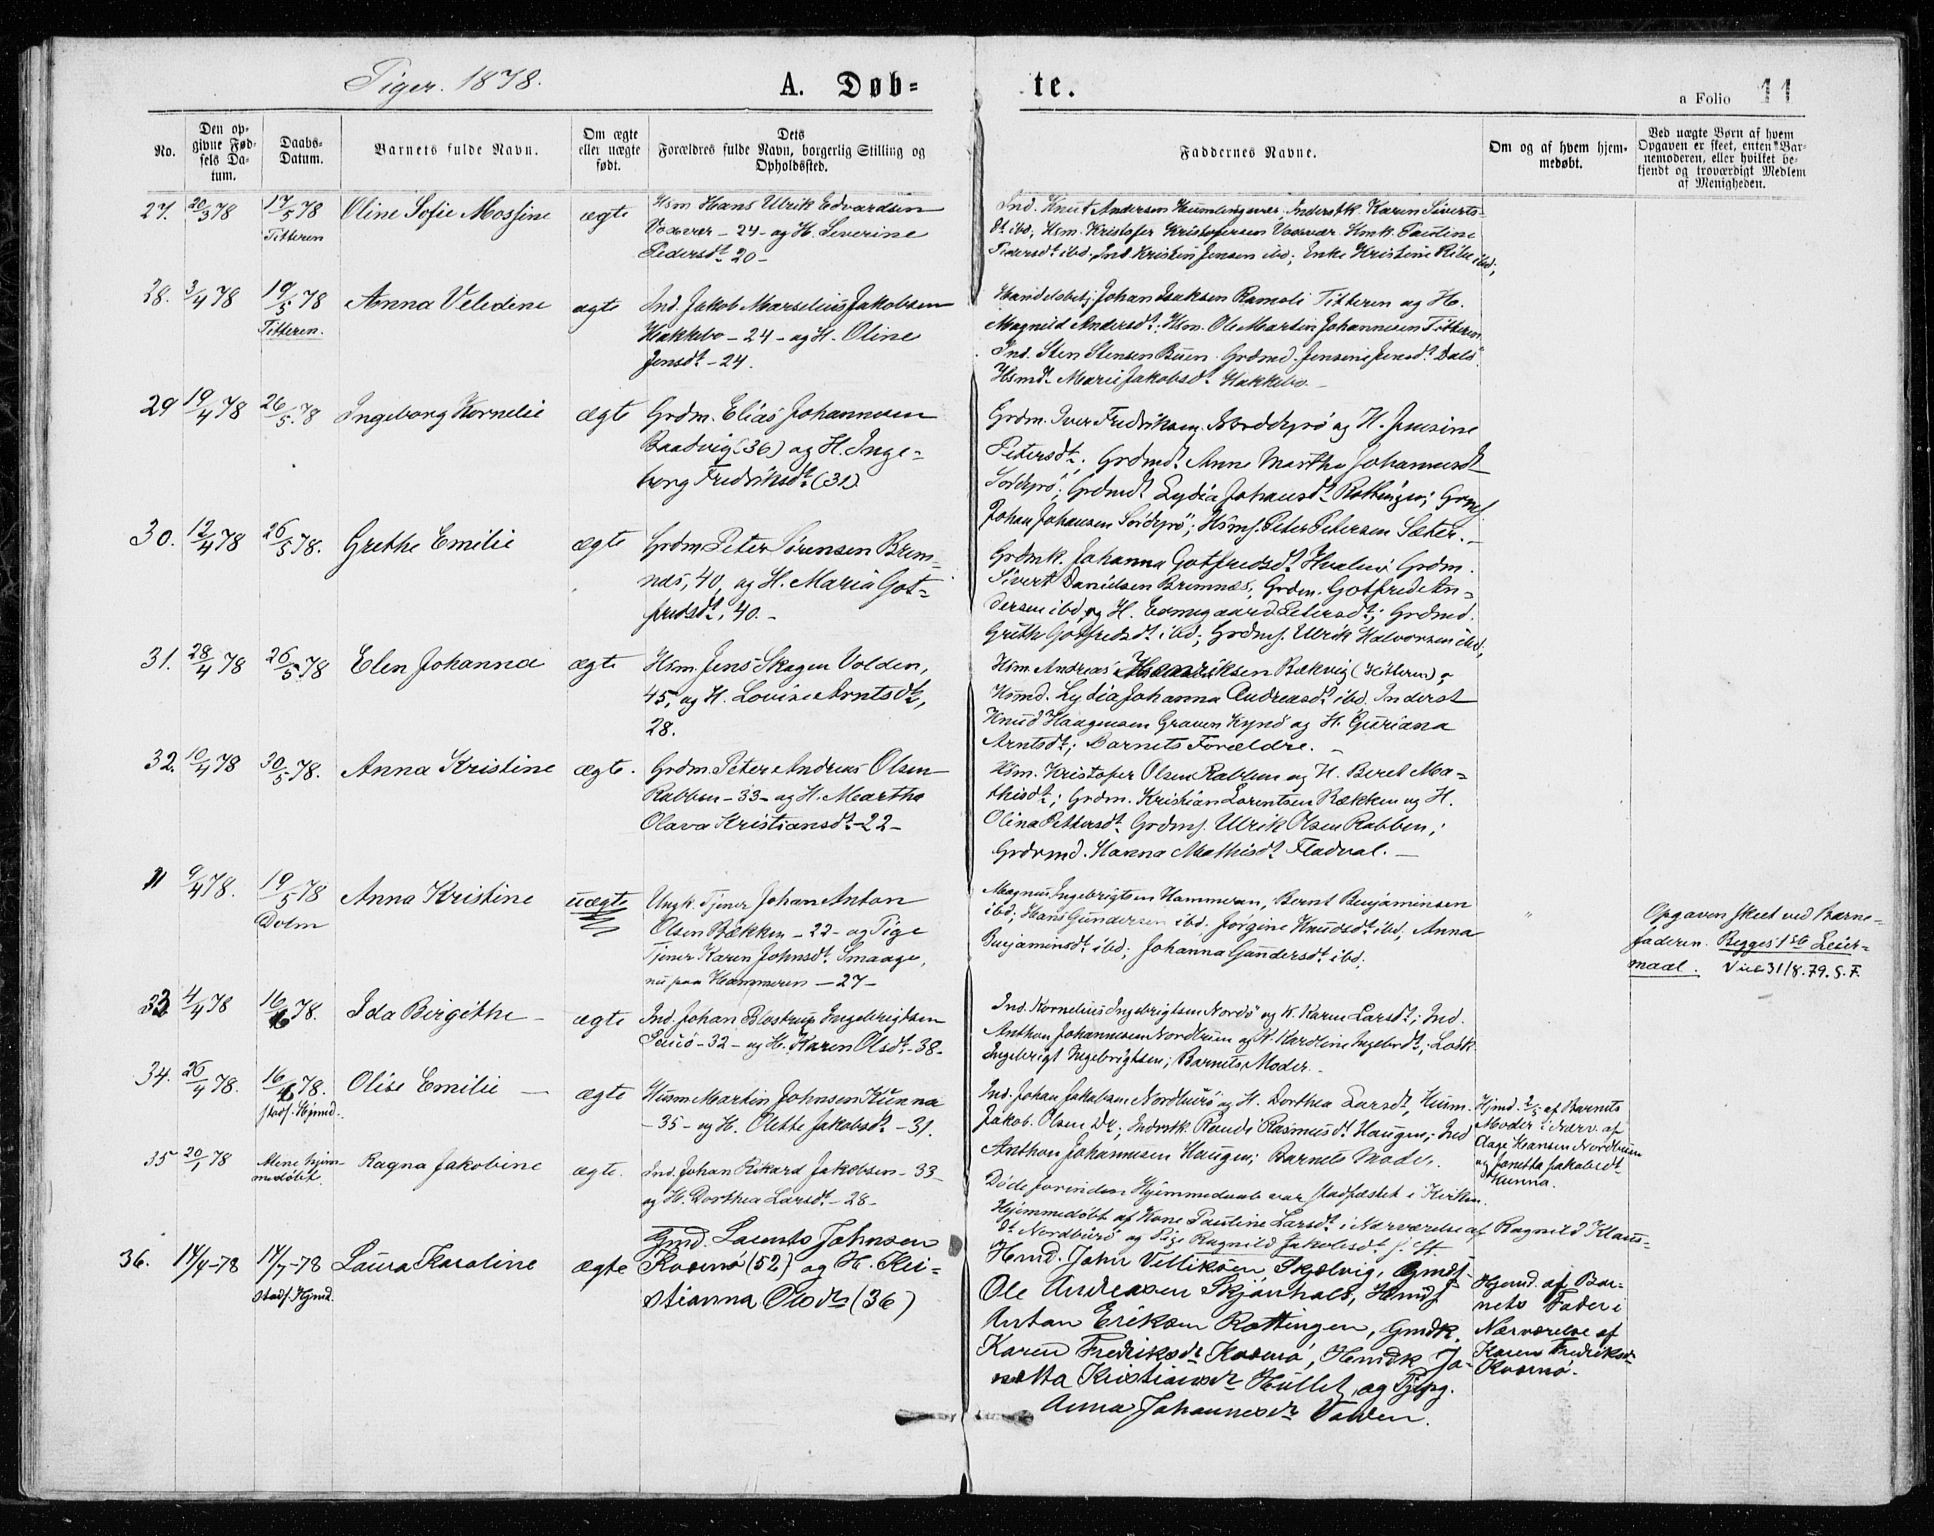 Piger. 1878.
A. Døb-
te.
a Folio 11
No.
Den op-
givne Fød-
sels Da-
tum.
Daabs-
Datum.
Barnets fulde Navn.
Om ægte
eller uægte
født.
Dets
Forældres fulde Navn, borgerlig Stilling og
Opholdssted.
Faddernes Navne.
Om og af hvem hjem-
medøbt.
Ved uægte Børn af hvem
Opgaven er skeet, enten Bar-
nemoderen, eller hvilket be-
kjendt og troværdigt Medlem
af Menigheden.
27. 20/3 78 17/5 78 Oline Sofie Mossine ægte
Titteren
Hsm Hans Ulrik Edvardsen
Vodsvær - 24 - og H. Severine
Pedersdt 20 -
Ind. Knut Andersen Humlingsvær, Inderstk. Karen Siverts-
dt ibd; Hsm. Kristofer Kristofersen Vodsvær. Hmk. Pauline
Pedersdt ibd; Ind. Kristen Jensen ibd; Enke Kristine Ribe ibd;
28. 3/4 78 19/5 78 Anna Veledine ægte
Titteren.
Ind. Jakob Marselius Jakobsen
Hakkebo - 24 - og H. Oline
Jensdt - 24.
Handelsbetj Johan Isaksen Ramsli Titteren og H.
Magnild Andersdt; Hsm. Ole Martin Johannesen Titteren
Ind. Sten Stensen Buen. Grdmd. Jensine Jensdt Dalö
Hsmd. Marie Jakobsdt Hakkebo. -
29 19/4 78 26/5 78 Ingeborg Kornelie ægte
Grdm. Elias Johannesen
Raadvig (36) og H. Inge-
borg Fredriksdt (31).
Grdm. Iver Fredriksen og H. Jensine
Petersdt; Grdmdt Anne Martha Johannesdt
; Grdmdt Lydia Johansdt Rottingen; Grmf
Johan Johansen ; Hsmf. Peter Petersen Sæter. -
30. 12/4 78 26/5 78. Grethe Emilie ægte
Grdm Peter Sørensen Brem-
næs, 40, og H. Maria Got-
fredsdt, 40. -
Grdmk. Johanna Gotfredsdt Grdm.
Sivert Danielsen Bremnæs; Grdm. Gotfred An-
dersen ibd, og H. Petersdt; Grdmd.
Grethe Gotfredsdt ibd; Grdmf. Ulrik Halvorsen ibd;
31. 28/4 78 26/5 78 Elen Johanna ægte
Hsm. Jens Skagen Volden,
45, og H. Lovise Arntsdt,
28.
Hsm. Andreas Henriksen Rækvig (Hitteren);
Hsmd. Lydia Johanna Andreasdt ibd. Inderst
Knud Haagensen Graven Kynö og H. Guriana
Arntsdt; Barnets Forældre. -
32. 10/4 78 30/5 78. Anna Kristine ægte.
Grdm. Peter Andreas Olsen
Rabben - 33 - og H. Martha
Olava Kristiansdt - 22 -
Hsm. Kristofer Olsen Rabben og H. Beret Ma-
thisdt; Grdm. Kristian Lorentsen Rækken og H.
Olina Pettersdt Grdmf. Ulrik Olsen Rabben;
Grdmd. Hanna Mathisdt Fladval. -
11 9/4 78. 19/5 78 Anna Kristine uægte
Dolm
Ungk. Tjener Johan Anton
Olsen Bækken - 22 - og Pige
Tjener Karen Johnsdt Smaage,
nu paa Hammeren - 27 -
Magnus Ingebrigtsen Hammeren, Bernt Benjaminsen
ibd; Hans Gundersen ibd; Jørgine Knudsdt ibd; Anna
Benjaminsdt ibd; Johanna Gundersdt ibd.
"
Opgaven skeet ved Barne-
faderen. Begges 1ste Leier-
maal. Vie 31/8. 79. S. F.
33 4/4 78 16/6 78. Ida Birgithe - ægte
Ind. Johan Blostrup Ingebrigtsen
- 32 - og H. Karen Olsdt - 38 -
Ind. Kornelius Ingebrigtsen Nordö og K. Karen Larsdt; Ind.
Anthon Johannesen Nordbuen og K. Karoline Ingebrdt; Losk.
Ingebrigt Ingebrigtsen; Barnets Moder. -
34. 26/4 78. 16/6 78. Olise Emilie - ægte
stadf. Hjmd.
Husm Martin Johnsen Kunna
- 35 - og H. Olette Jakobsdt - 31.
Ind. Johan Jakobsen Nordbuiö og H. Dorthea Larsdt, Husm.
Jakob Olsen Do; Indstk. Randi Rasmusdt Haugen; Ind
Anthon Johannesen Haugen; Barnets Moder.
Hjmd. 2/5 af Barnets
Moder i Nærv. af
Aage Hansen Nordbuen
og Janetta Jakobsdt
Kunna.
35 20/1 78 Alene hjem- Ragna Jakobine ægte.
medøbt.
Ind. Johan Rikard Jakobsen - 33 -
og H. Dorthea Larsdt - 28 -
Døde forinden Hjemmedaab var stadfæstet i Kirken.
Hjemmedøbt af Kone Pauline Larsdt i Nærværelse af Ragnild Klaus-
dt Nordbuiö og Pige Ragnild Jakobsdt s. St.
36. 14/4-78 14/7-78 Laura Karoline ægte
stadf. Hjmd.
Gmd. Laurits Johnsen
Kvernø (52) og H. Kri-
stianna Olsdtr (36)
Hmd. John Villiksen Skjelvig, Gmdf
Ole Andreasen Skjønhals, Hmdf
Anton Eriksen Rottingen, Gmdk.
Karen Fredriksdr Kvernø, Hmdk Ja-
netta Kristiansdr Hullet og Pjgpg.
Anna Johannesdr Valden.
Hjemd. af Bar-
nets Fader i
Nærværelse af
Karen Fredriksdr
Kvernø.